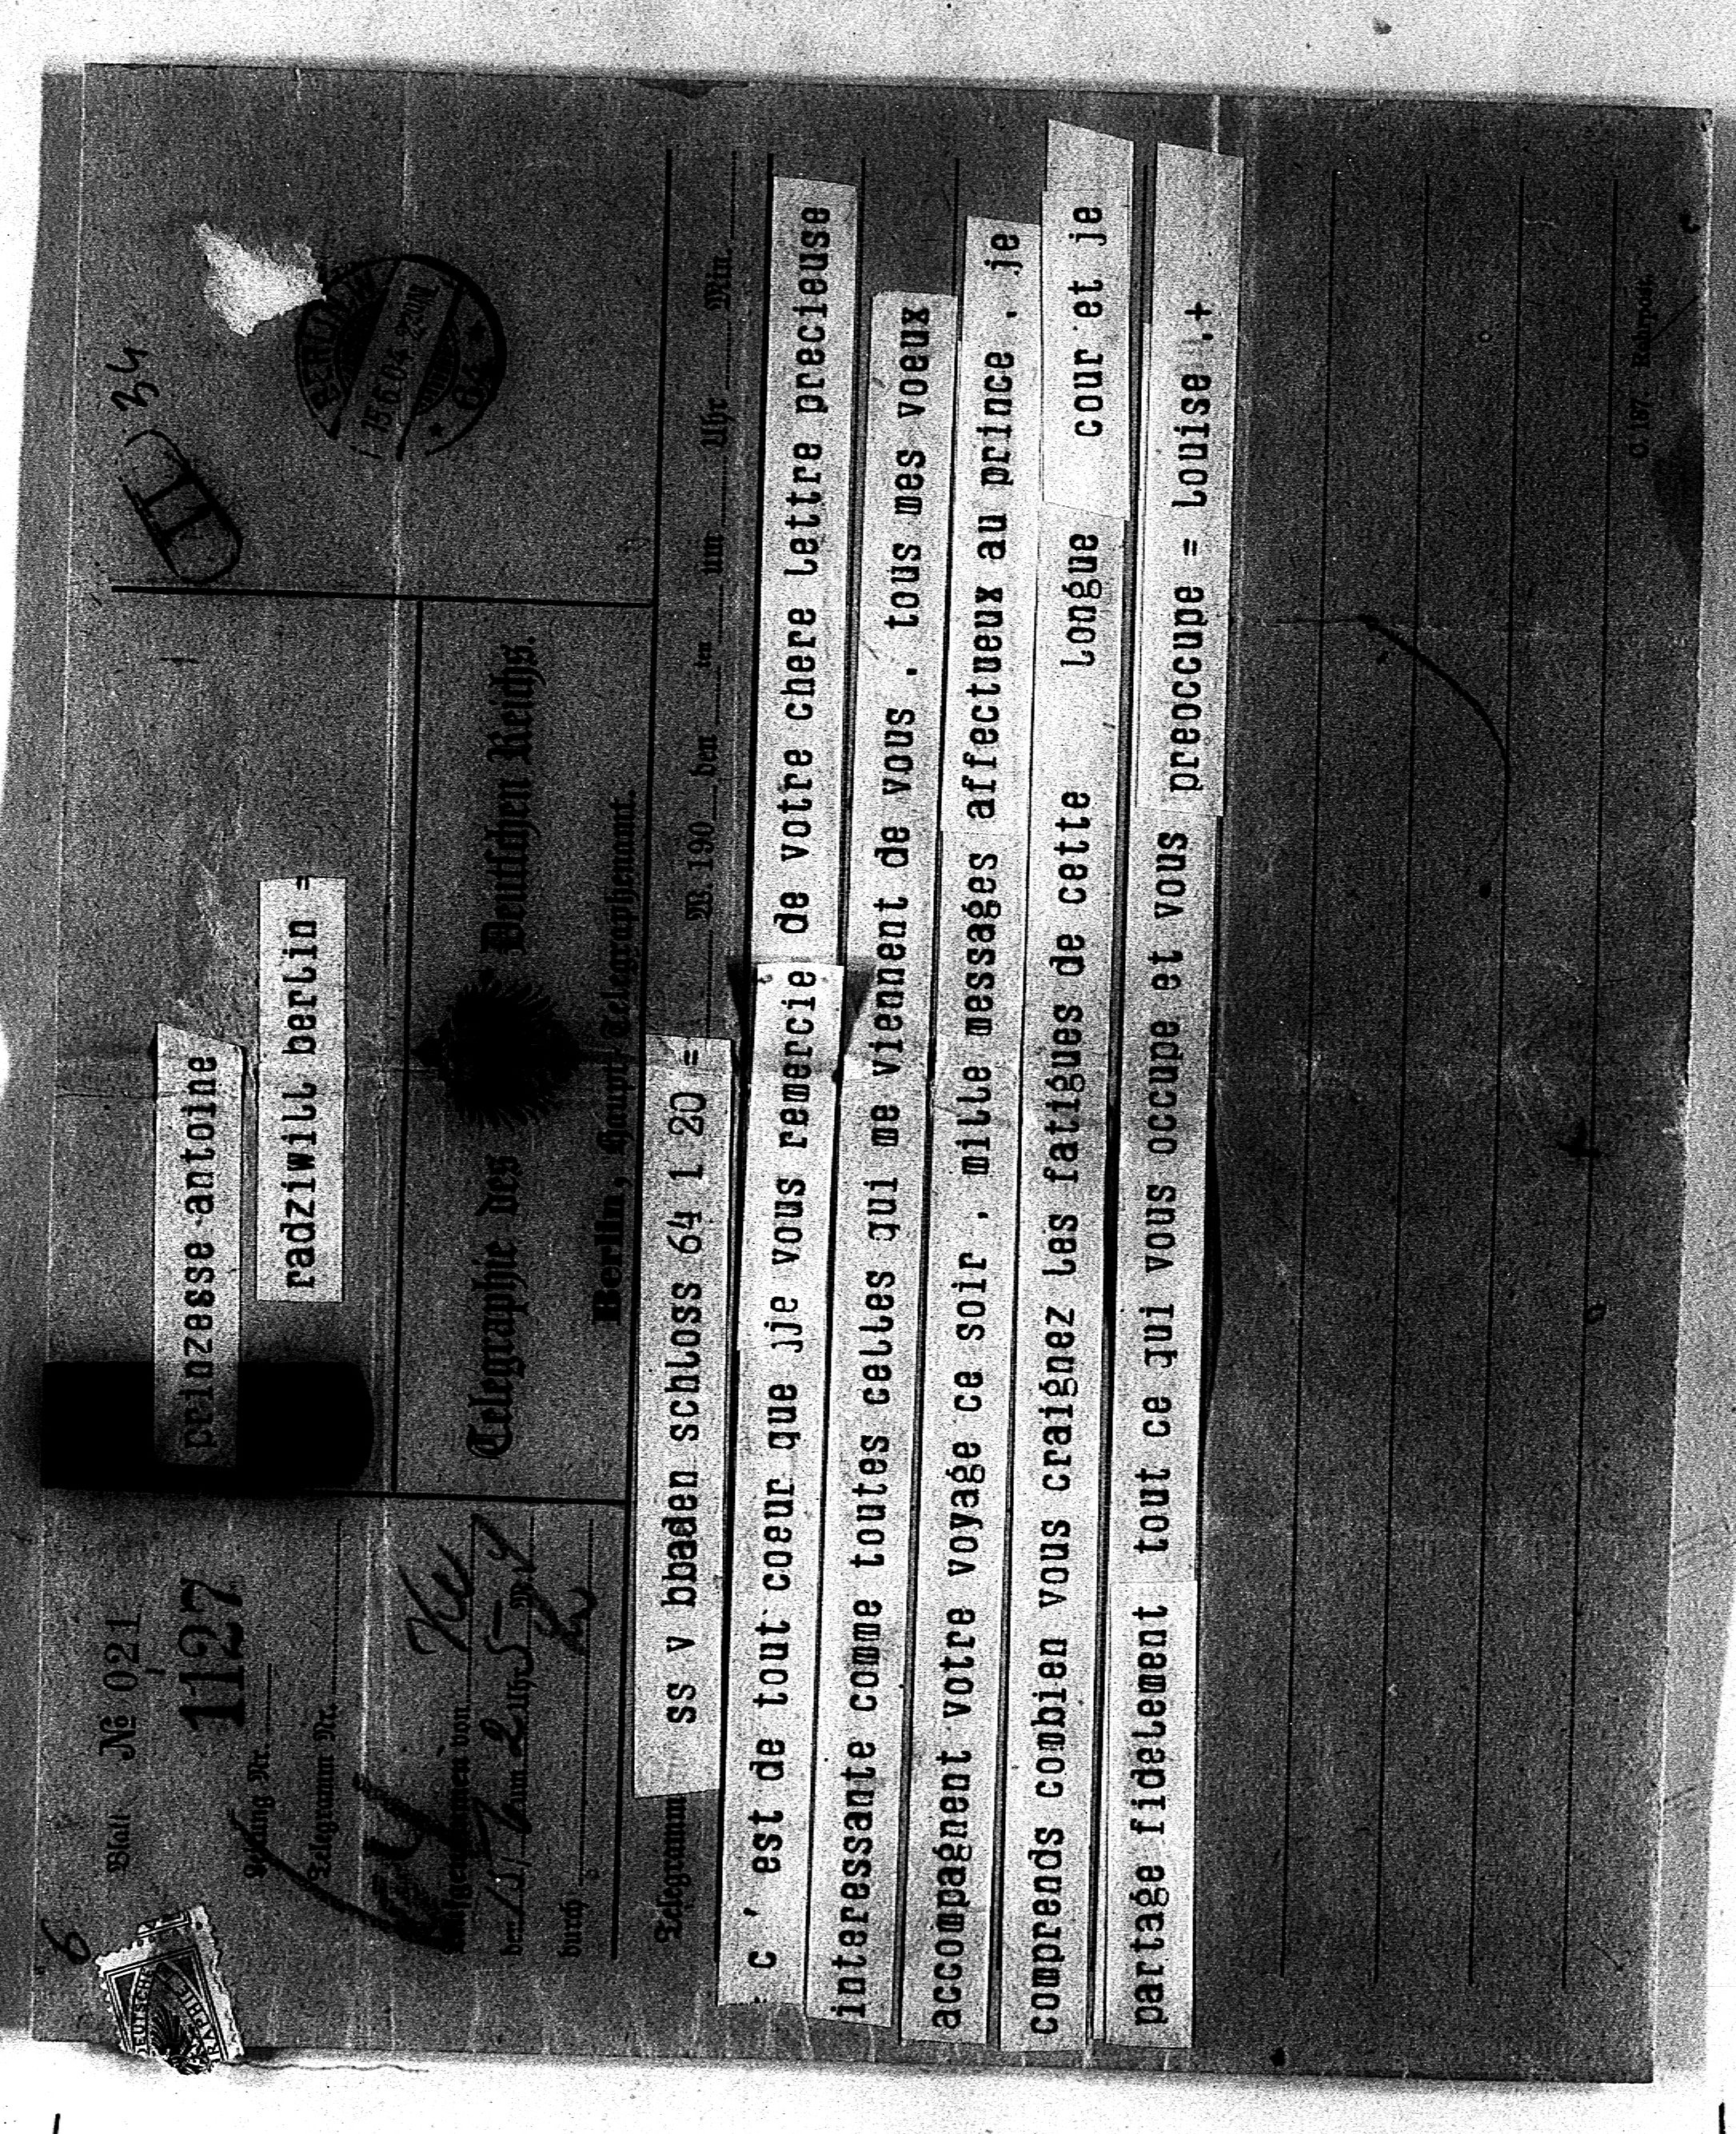 6
Blatt № 021
1127
Leitung Nr.
Telegramm Nr.
Aufgenommen von
den 15/ um 2 Uhr 5
durch
prinzesse antoine
radziwill berlin =
II 34
BERLIN
15.6.04
64
Telegraphie des Deutschen Reichs.
Berlin, Haupt-Telegraphenamt.
Telegramm ss v bbaden schloss 64 1 20 = W. 190 den ten um Uhr Min.
c ' est de tout coeur que jje vous remercie de votre chere lettre precieuse
interessante comme toutes celles qui me viennent de vous . tous mes voeux
accompagnent votre voyage ce soir , mille messages affectueux au prince , je
comprends combien vous craignez les fatigues de cette longue cour et je
partage fidelement tout ce qui vous occupe et vous preoccupe = louise .+
C 187